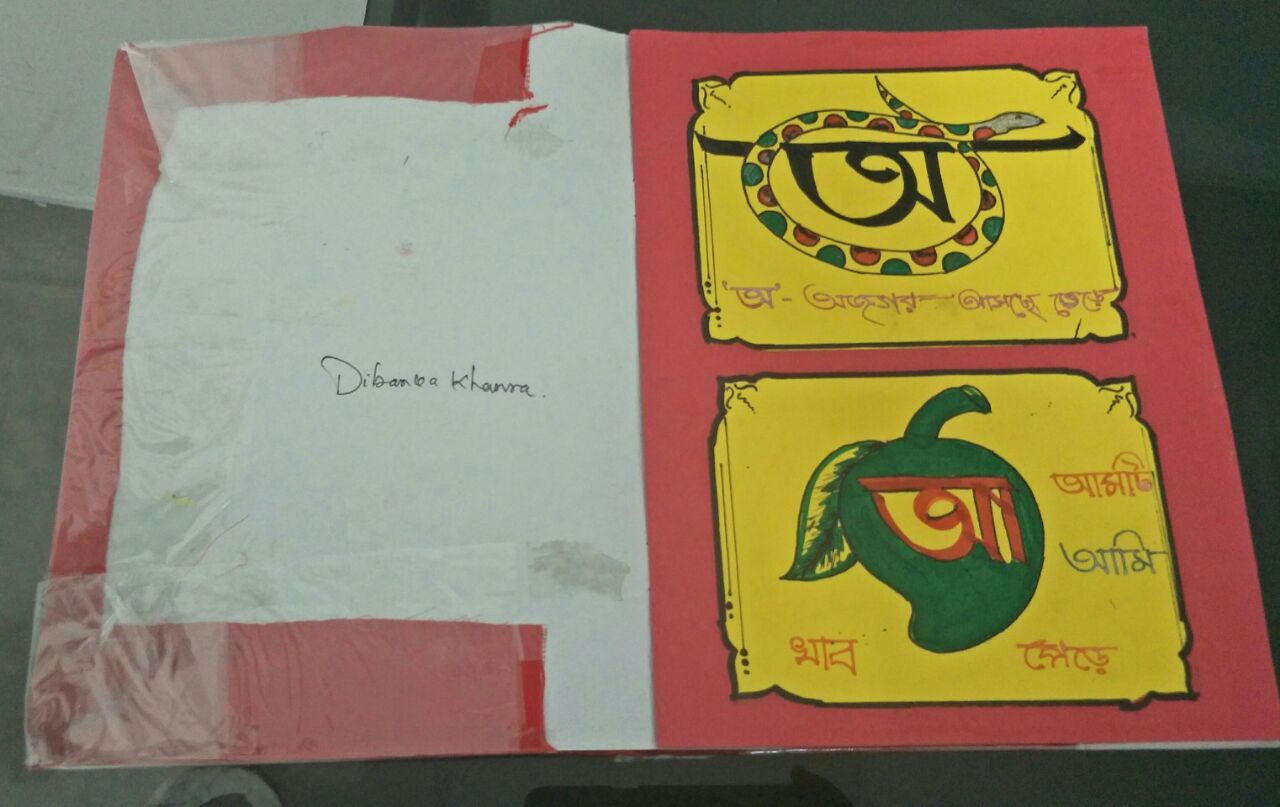 Dibanwa Khanra.
অ
'অ'- অজগর- আসছে তেড়ে
আ
আমটি
আমি
খাব পেড়ে